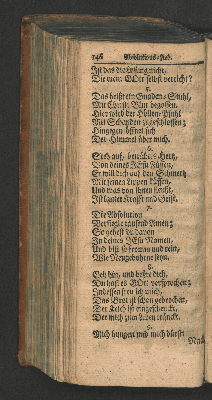 146 Absolutions-Lied.
Ist das die Losung nicht,
Die mein GOtt selbst verricht?
5.
Das heist ein Gnaden-Stuhl,
Mit Christi Blut begossen,
Hier wird der Höllen-Pfuhl
Mit Schanden zugeschlossen;
Hingegen öffnet sich
Der Himmel über mich.
6.
Steh auf, betrübtes Hertz,
Von deines JEsu Füssen,
Er will dich auf den Schmertz
Mit seinen Lippen küssen,
Und was von ihnen fleust,
Ist lauter Krafft und Geist.
7.
Die Absolution
Versiegle tausend Amen;
So gehest du davon
In deines JEsu Namen,
Und bist so fromm und rein,
Wie Neugebohrne seyn.
8.
Geh hin, und beßre dich,
Du hast es GOtt versprochen;
Indessen freu ich mich,
Das Brot ist schon gebrochen,
Der Kelch ist eingeschenckt,
Der mich zum Leben träncket.
9.
Mich hungert und mich dürst